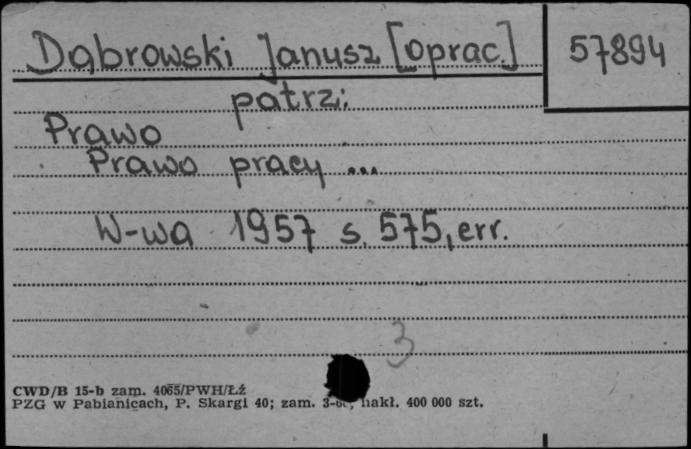 Dąbrowski Janusz [oprac.] 57894
patrz:
Prawo
Prawo pracy ...
W-wa 1957 s. 575, err.
3
CWD/B 15-b zam. 4065/PWH/Łź
PZG w Pabianicach, P. Skargi 40; zam. nakł. 400 000 szt.